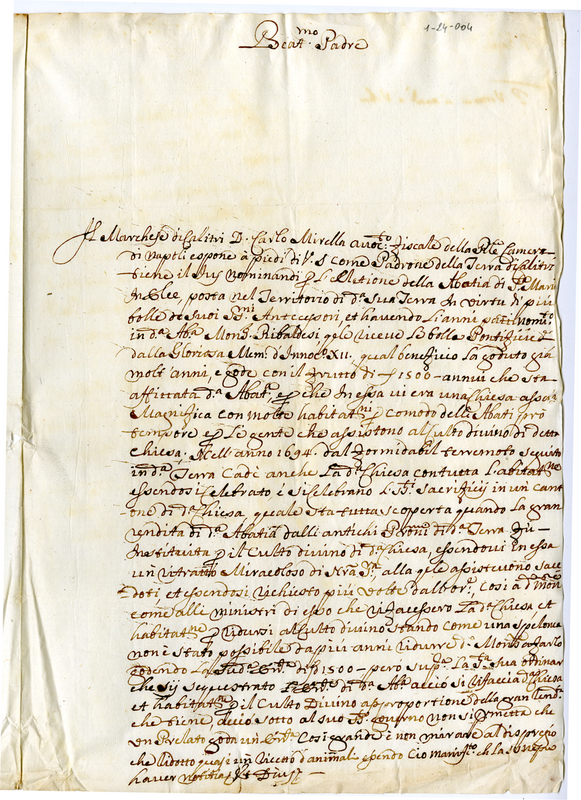 1-24-004
Beat.mo Padre
Il Marchese di Calitri D. Carlo Mirella avoc.to fiscale della Camera
di Napoli espone à piedi di V. S. come Padrone della Terra di Calitri
tiene il Jus nominandi p. L'elettione della Abatia di S.ta Maria
In Elce, posta nel Territorio di d.a sua Terra In virtù di più
bolle de suoi Antecessori, et havendo L'anni
in d.a Aba. Mons. Ribaldesi q.le riceve Le bolle Pontificie
dalla Gloriosa Mem. d'Innoc.o XII. qual beneficio La goduto già
molt'anni, e gode con il frutto di 1500 - annui che sta
affittata d.a Abat. p.che In essa vi era una Chiesa assai
Magnifica con molte habitat.ni p. comodo delli Abati prò
tempore e p. Le gente che assistono al culto divino di detta
Chiesa. Nell'anno 1694. dal formidabil terremoto seguito
in d.a Terra Cadè anche La d.a Chiesa con tutta L'abitat.ne
essendosi Celebrato e si celebrano Li Sacrificij in un cant
one di d.a Chiesa, quale sta tutta scoperta quando La gran
rendita di d.a Abatia dalli antichi P.roni di d.a Terra fù
Instituita p. il Culto divino di d.a Chiesa, essendovi In essa
un ritratto Miracoloso di N.ra S.ra alla q.le assistevono sace
doti et essendosi richiesto più volte Così a d.o Mons.
come alli ministri di esso che rifacessero La d.a Chiesa et
habitat.ne p. ridursi al culto divino stando come una spelonca
non è stato possibile da più anni ridurre d.o Mons. a farlo
godendo La sud.a di 1500 - però sup.ca La S.a sua ordinar
che sij sequestrato di d.a Aba. acciò si rifaccia d.a Chiesa
et habitat.ne p. il Culto Divino a pportione della gran
che tiene, acciò sotto al suo governo non si permetta che
un Prelato goda un Così grande e non mirare al dispregio
che ridotto quasi un ricetto d'animali
haver notitia